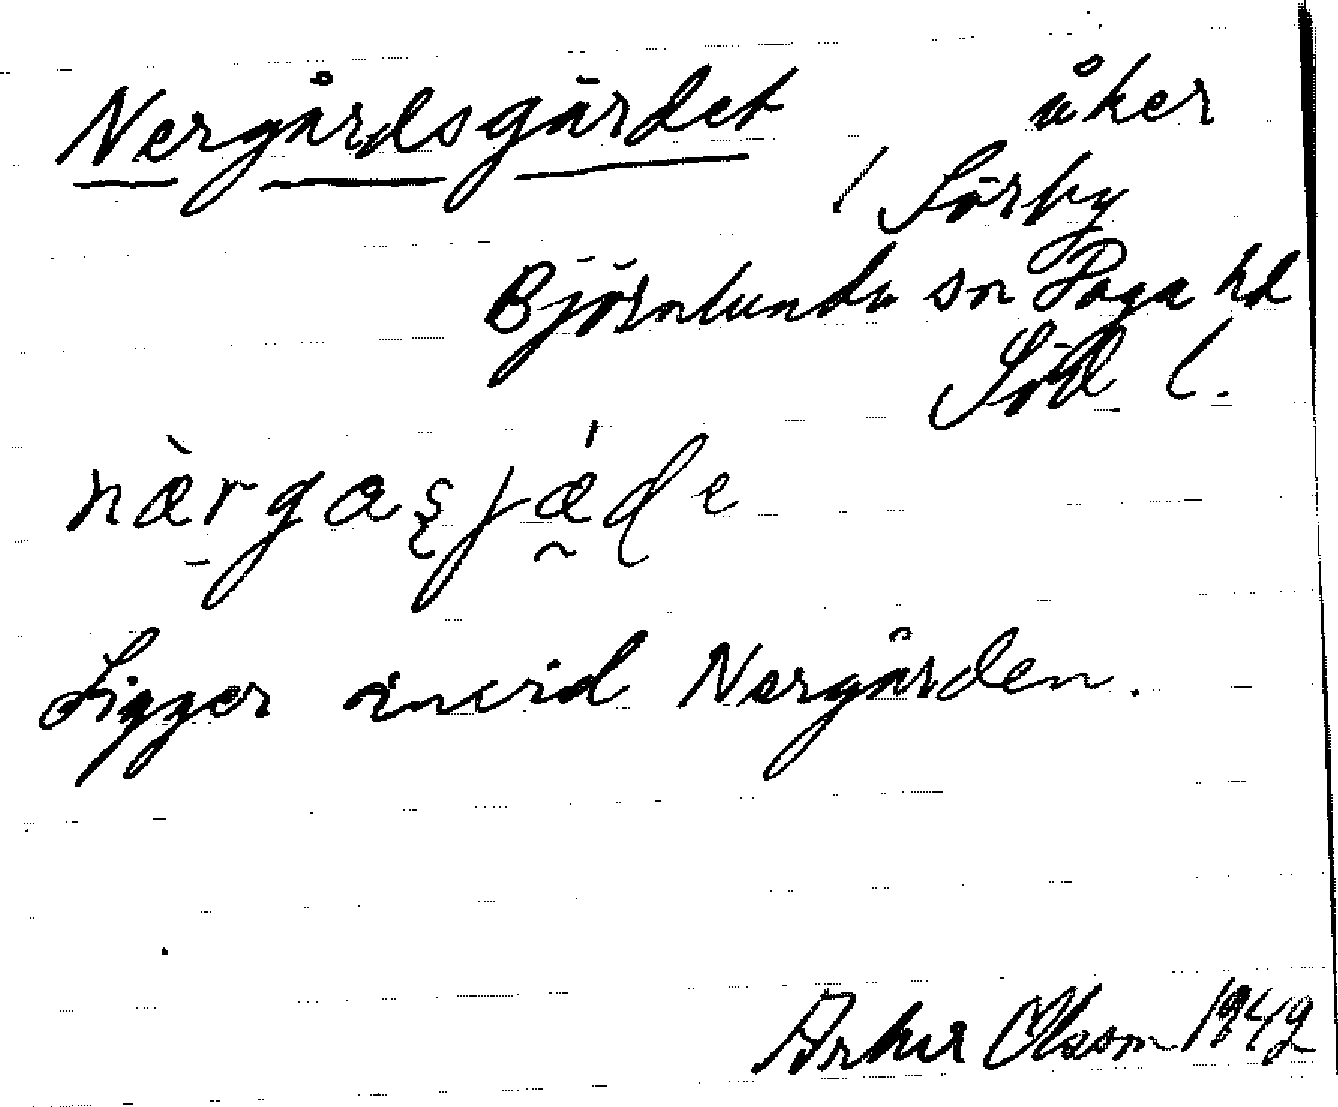 Nergårdsgärdet åker
/ Sörby
Björnlunda sn Daga hd
Söd l.
Ligger invid Nergården.
Arthur Olsson 1949